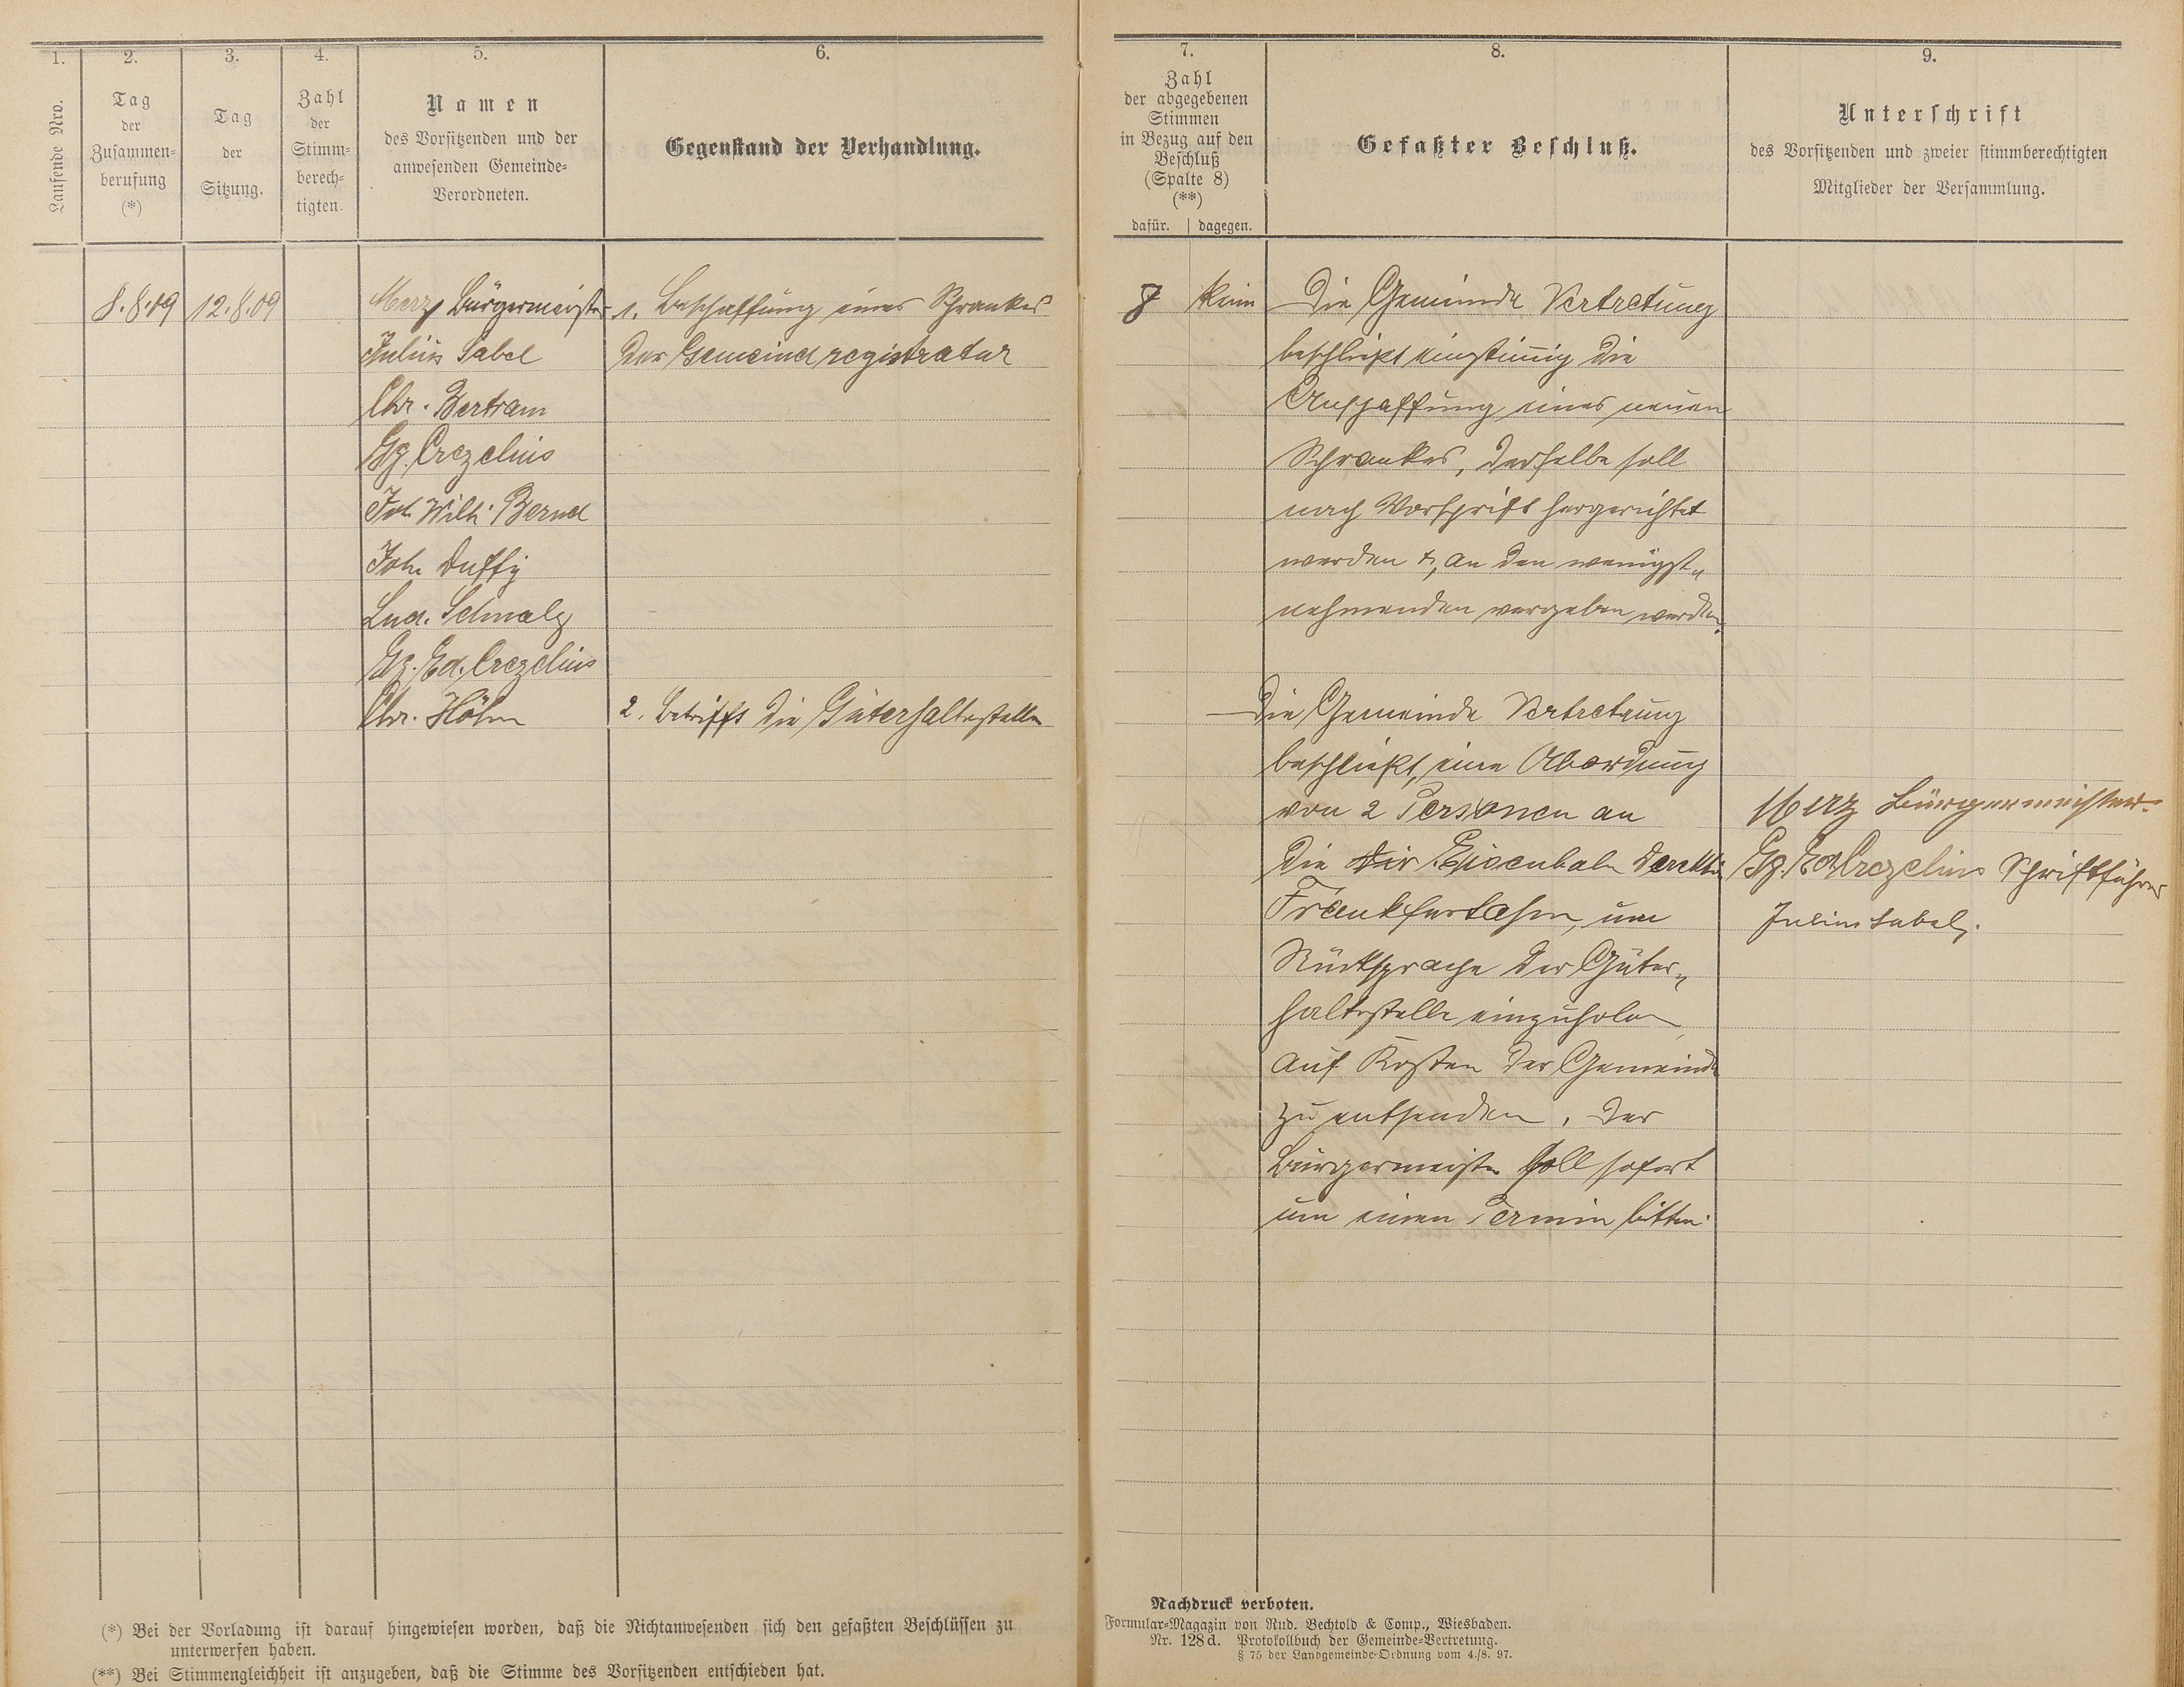 1.
2.
3.
4.
5.
6.
Laufende Nro.
Tag
der
Zusammen=
berufung
(*)
Tag
der
Sitzung.
Zahl
der
Stimm=
berech=
tigten.
Namen
des Vorsitzenden und der
anwesenden Gemeinde=
Verordneten.
Gegenstand der Verhandlung.
8.8.09
12.8.09
Merz Bürgermeister
Julius Sabel
Chr. Bertram
Gg. Crezelius
Joh Wilh. Bernd
Joh. Duffy
Lud. Schmalz
Gg. Ed. Crezelius
Chr. Höhn
1. Beschaffung eines Schrankes
der Gemeind registratur
2. Betriffs die Güterhaltestelle
(*) Bei der Vorladung ist darauf hingewiesen worden, daß die Nichtanwesenden sich den gefaßten Beschlüssen zu
unterwerfen haben.
(**) Bei Stimmengleichheit ist anzugeben, daß die Stimme des Vorsitzenden entschieden hat.
7.
8.
9.
Zahl
der abgegebenen
Stimmen
in Bezug auf den
Beschluß
(Spalte 8)
(**)
dafür. | dagegen.
Gefaßter Beschluß.
Unterschrift
des Vorsitzenden und zweier stimmberechtigten
Mitglieder der Versammlung.
kein
Die Gemeinde Vertretung
beschließt einstimig die
Anschaffung eines neuen
Schrankes, derselbe soll
nach Vorschrift hergerichtet
werden &, an den wenigst„
nehmenden vergeben werden.
Die Gemeinde Vertretung
beschließt, eine Abordnung
von 2 Personen an
die Eisenbahn
Frankfurt um
Rücksprache der Güter„
haltestelle einzuholen
auf Kosten der Gemeinde
zu entsenden. Der
Bürgermeister soll sofort
um einen Termin bitten.
Merz Bürgermeister.
Gg. Ed Crezelius Schriftführer
Julius Sabel.
Nachdruck verboten.
Formular=Magazin von Rud. Bechtold & Comp., Wiesbaden.
Nr. 128 d. Protokollbuch der Gemeinde=Vertretung.
§ 75 der Landgemeinde=Ordnung vom 4./8. 97.